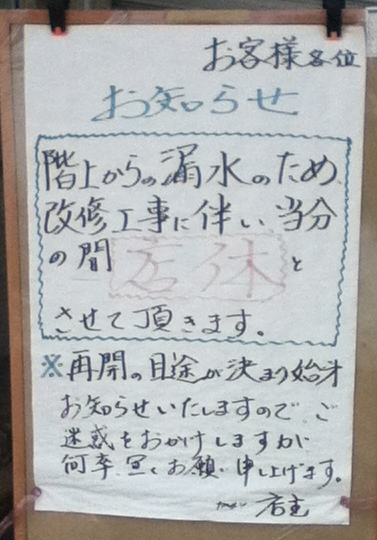 お客様各位
お知らせ
階上からの漏水のため、
改修工事に伴い、当分
の間 店休 と
させて頂きます。
※再開の目途が決まり始才
お知らせいたしますので、ご
迷惑をおかけしますが
何卒、宜しくお願い申し上げます。
店主